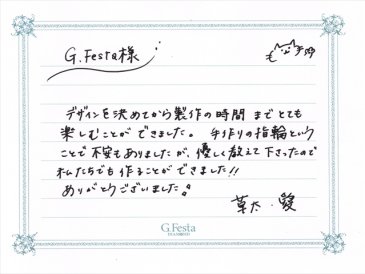 G.Festa様
デザインを決めてから製作の時間までとても
楽しむことができました。手作りの指輪という
ことで不安もありましたが、優しく教えて下さったので
私たちでも作ることができました!!
ありがとうございました。
草太・愛
G.Festa